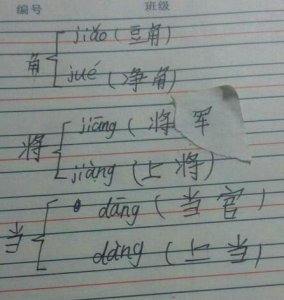 编号 班级
角 { jiǎo (豆角)
jué (净角)
将 { jiāng (将军
jiàng (上将)
当 { dāng (当官)
dàng (上当)